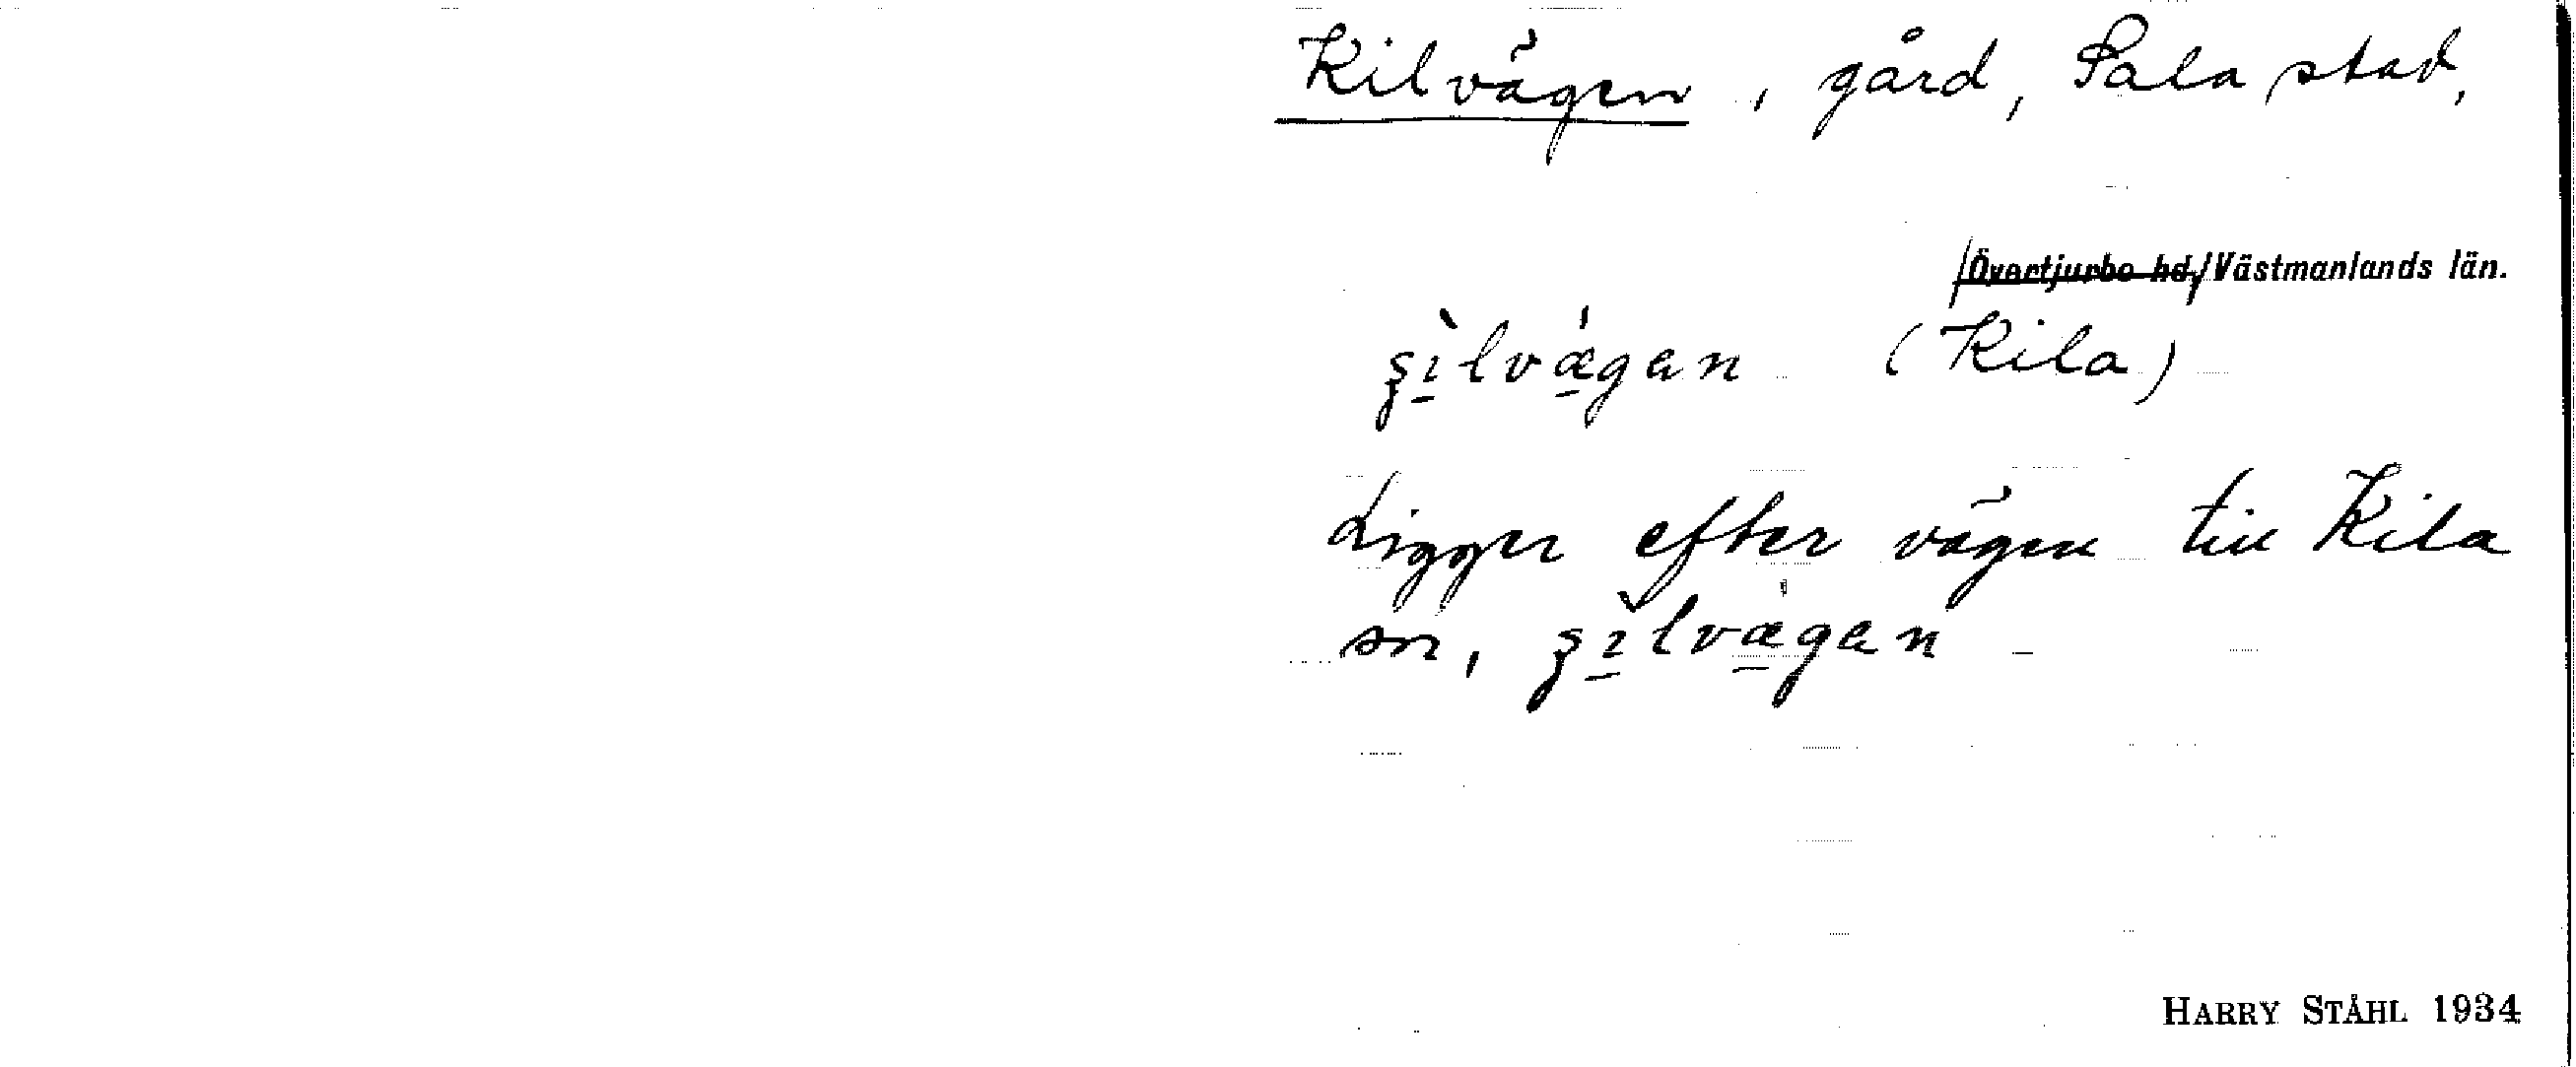 Kilvägen, gård, Sala stad,
Övertjurbo hd, Västmanlands län.
ʂı̀lvǽgan (Kila)
Ligger efter vägen till Kila
sn, ʂı̀lvǽgan
HARRY STÅHL 1934